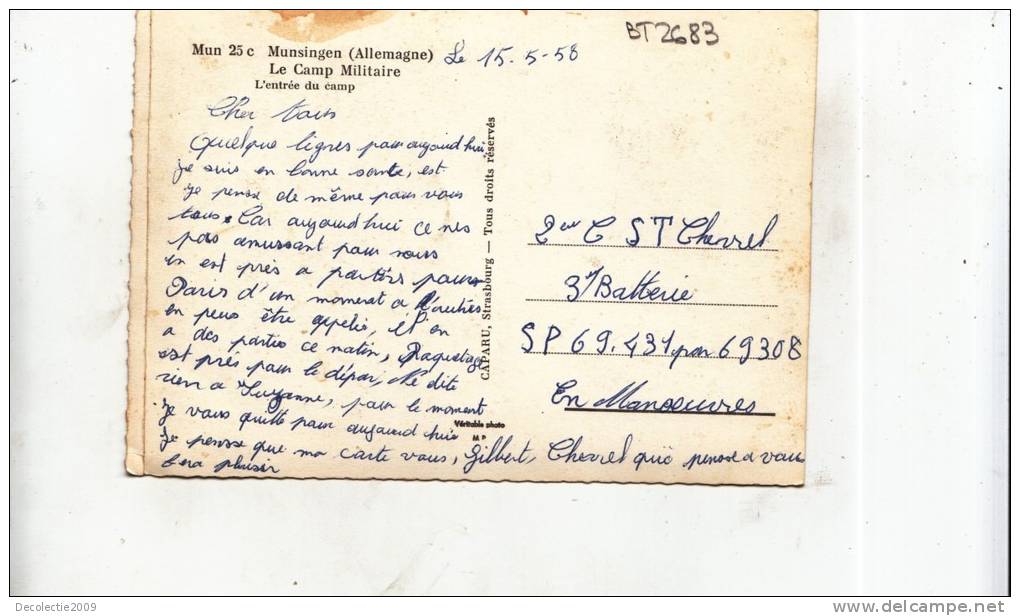 BT2683
Mun 25 c Munsingen (Allemagne)
Le Camp Militaire
L'entrée du camp
Le 15-5-58
Cher tous
Quelque lignes pour aujourd'hui,
je suis en bonne sante, est
je pense de même pour vous
tous. Car aujourd'hui ce nes
pas amussant pour nous
en est près a partirs pour
Paris d'un moment a l'autres
en peus être appelés, et en
a des partis ce matin, Paquetage
est prés pour le dépar, Ne dite
rien a Suzanne, pour le moment
je vous quitte pour aujourd'hui
je pensse que ma carte vous, Gilbert, Chevrel qui pensse a vous
fera plaisir
CAPARU, Strasbourg — Tous droits réservés
Véritable photo
M P
2em C ST Chevrel
3e Batterie
SP 69.431 par 69308
En Manoeuvres
Decolectie2009
http://www.delcampe.net